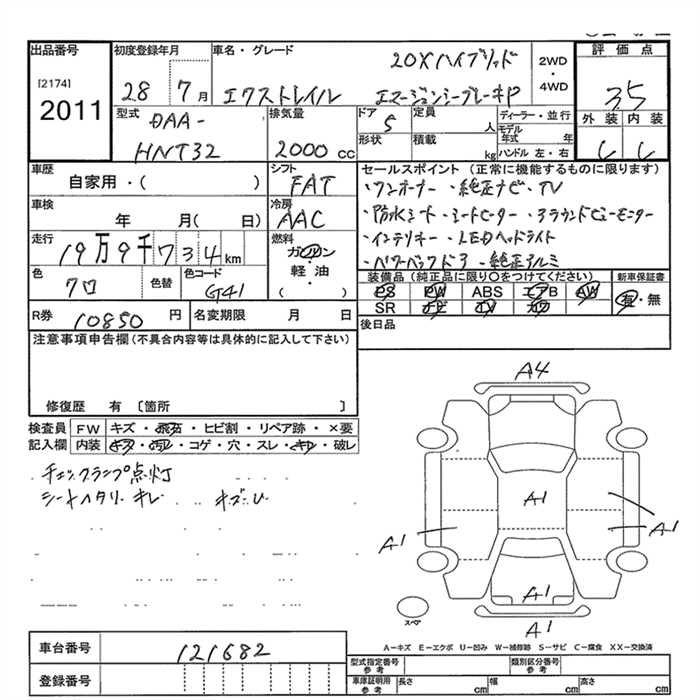 出品番号
[2174]
2011
初度登録年月
28 7月
車名・グレード
20Xハイブリッド
エクストレイル エマージェンシーブレーキP
2WD
・
4WD
評価点
3.5
外装 内装
C C
型式
DAA-
HNT32
排気量
2000cc
ドア
5
形状
定員
人
積載
kg
ディーラー・並行
モデル年式 年
ハンドル 左・右
車歴
自家用・( )
シフト
FAT
車検
年 月( 日)
冷房
AAC
走行
19万9千734km
燃料
ガソリン
・
軽油
・
( )
色
クロ
色替
色コード
G41
R券 10850円
名変期限 月 日
セールスポイント(正常に機能するものに限ります)
・ワンオーナー ・純正ナビ・TV
・防水シート・シートヒーター・アラウンドビューモニター
・インテリキー・LEDヘッドライト
・パワーバックドア・純正アルミ
装備品(純正品に限り○をつけてください)
PS PW ABS エアB AW
SR ナビ TV カワ
新車保証書
有・無
後日品
注意事項申告欄(不具合内容等は具体的に記入して下さい)
修復歴 有 〔箇所 〕
検査員記入欄
FW キズ・飛石・ヒビ割・リペア跡・×要
内装 キズ・汚レ・コゲ・穴・スレ・キレ・破レ
チェックランプ点灯
シートヘタリ・キレ キズ・U
A4
A1
A1
A1
A1
A1
スペア
A-キズ E-エクボ U-凹み W-補修跡 S-サビ C-腐食 XX-交換済
車台番号 121682
登録番号
型式指定番号 参考
類別区分番号 参考
車庫証明用 参考
長さ cm
幅 cm
高さ cm